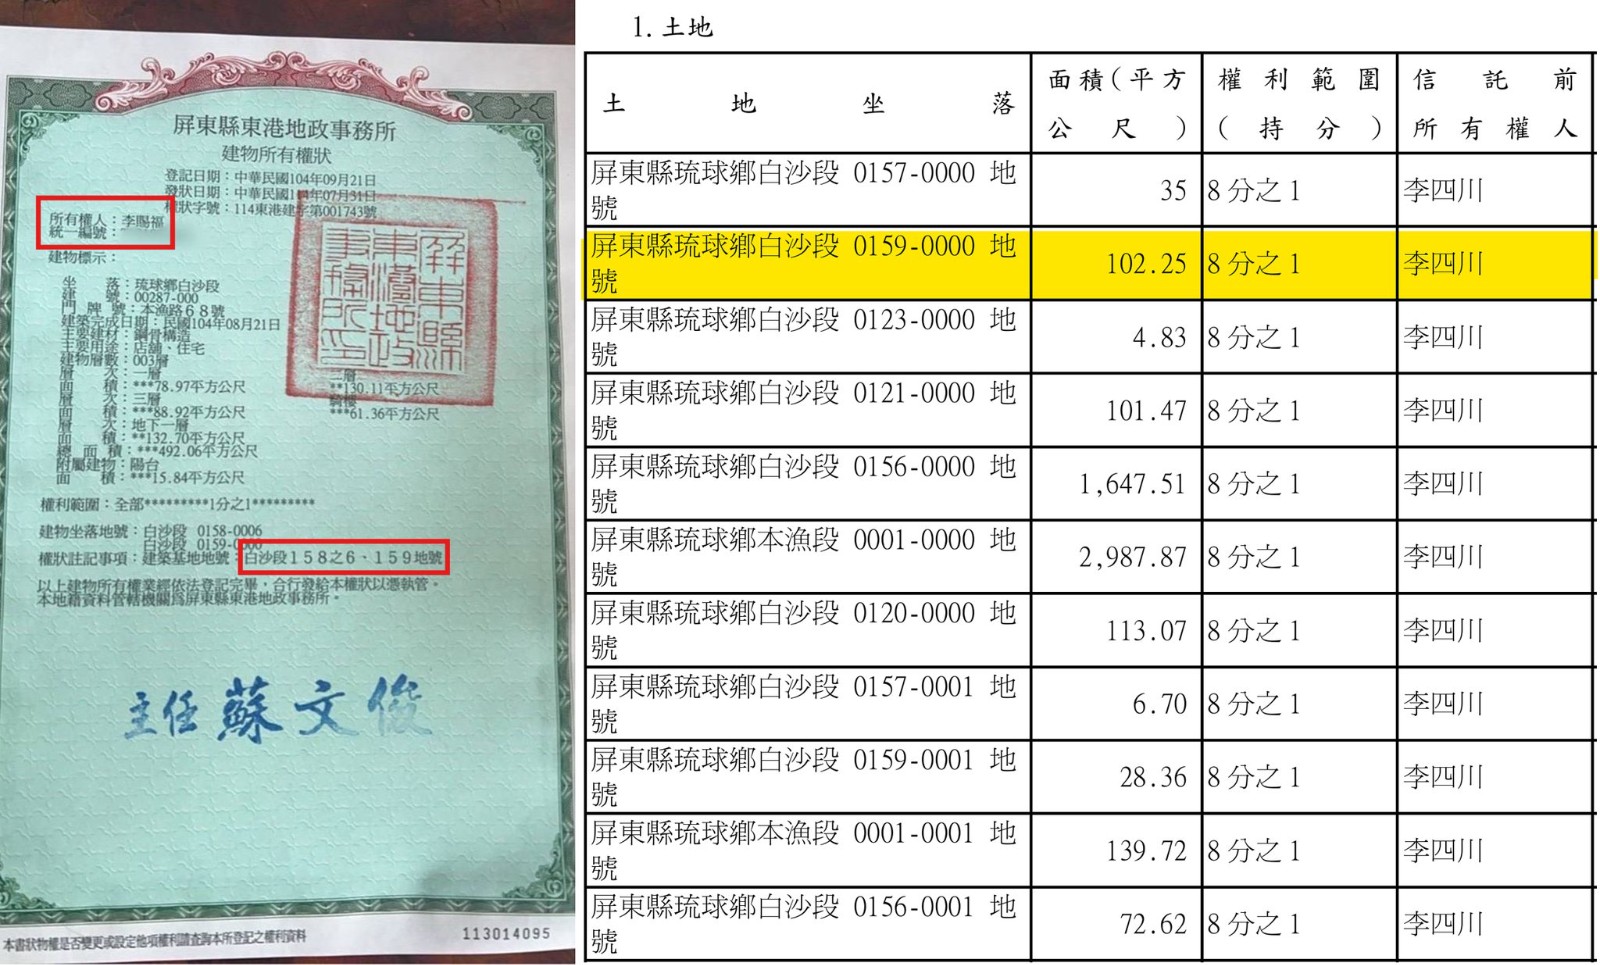 屏東縣東港地政事務所
建物所有權狀
登記日期：中華民國104年09月21日
發狀日期：中華民國114年07月31日
權狀字號：114東港建字第001743號
所有權人：李賜福
統一編號：
建物標示：
坐　　落：琉球鄉白沙段
建　　號：00287-000
門　牌　號：本漁路６８號
建築完成日期：民國104年08月21日
主要建材：鋼骨構造
主要用途：店舖、住宅
建物層數：003層
層　　次：一層　二層
面　　積：***78.97平方公尺　**130.11平方公尺
層　　次：三層　騎樓
面　　積：***88.92平方公尺　***61.36平方公尺
層　　次：地下一層
面　　積：**132.70平方公尺
總　面　積：***492.06平方公尺
附屬建物：陽台
面　　積：***15.84平方公尺
權利範圍：全部*********1分之1*********
建物坐落地號：白沙段 0158-0006
白沙段 0159-0000
權狀註記事項：建築基地地號：白沙段１５８之６、１５９地號
以上建物所有權業經依法登記完畢，合行發給本權狀以憑執管。
本地籍資料管轄機關為屏東縣東港地政事務所。
屏東縣東港地政事務所印
主任 蘇文俊
本書狀物權是否變更或設定他項權利請查詢本所登記之權利資料
113014095
1. 土地
土地坐落　面積（平方公尺）　權利範圍（持分）　信託前所有權人
屏東縣琉球鄉白沙段 0157-0000 地號　35　8分之1　李四川
屏東縣琉球鄉白沙段 0159-0000 地號　102.25　8分之1　李四川
屏東縣琉球鄉白沙段 0123-0000 地號　4.83　8分之1　李四川
屏東縣琉球鄉白沙段 0121-0000 地號　101.47　8分之1　李四川
屏東縣琉球鄉白沙段 0156-0000 地號　1,647.51　8分之1　李四川
屏東縣琉球鄉本漁段 0001-0000 地號　2,987.87　8分之1　李四川
屏東縣琉球鄉白沙段 0120-0000 地號　113.07　8分之1　李四川
屏東縣琉球鄉白沙段 0157-0001 地號　6.70　8分之1　李四川
屏東縣琉球鄉白沙段 0159-0001 地號　28.36　8分之1　李四川
屏東縣琉球鄉本漁段 0001-0001 地號　139.72　8分之1　李四川
屏東縣琉球鄉白沙段 0156-0001 地號　72.62　8分之1　李四川